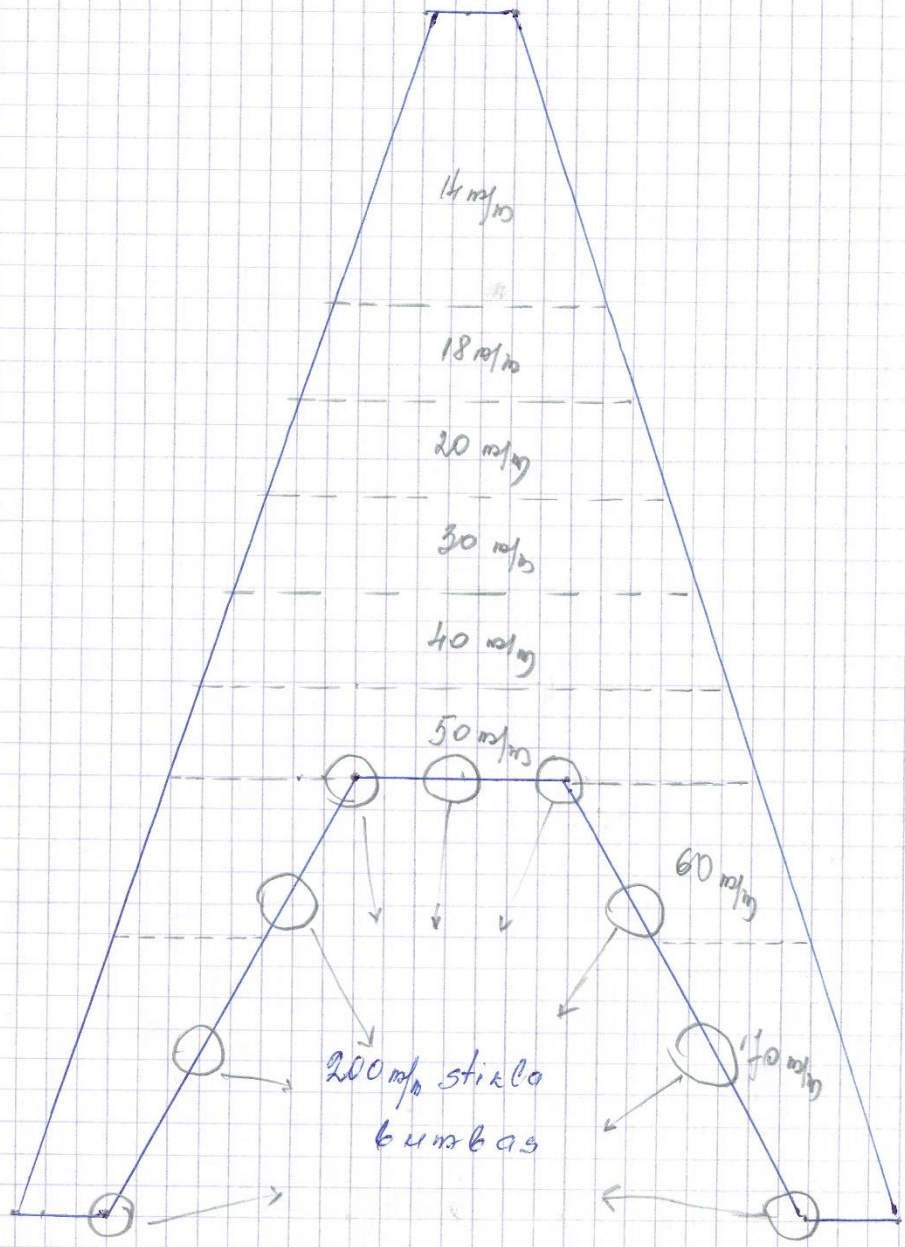 14 m/m
18 m/m
20 m/m
30 m/m
40 m/m
50 m/m
60 m/m
70 m/m
200 m/m stikla
bumbas